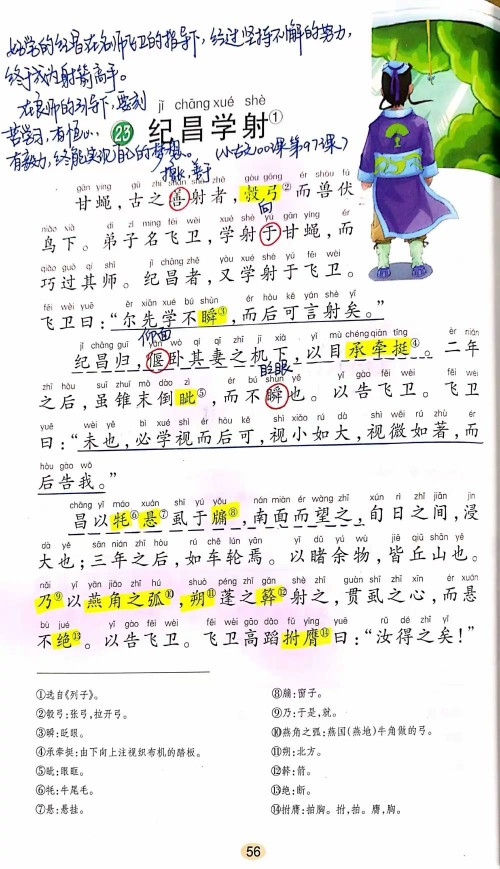 好学的纪昌在名师飞卫的指导下,经过坚持不懈的努力,
终于成为射箭高手。
在良师的引导下,要刻
苦学习,有恒心,
有毅力,终能实现自己的梦想。
(小古文100课第97课)
jì chāng xué shè
23 纪昌学射①
擅长 善于
gān yíng gǔ zhī shàn shè zhě gòu gōng ér shòu fú
甘蝇,古之善射者,彀弓②而兽伏
向
niǎo xià dì zǐ míng fēi wèi xué shè yú gān yíng ér
鸟下。弟子名飞卫,学射于甘蝇,而
qiǎo guò qí shī jì chāng zhě yòu xué shè yú fēi wèi
巧过其师。纪昌者,又学射于飞卫。
fēi wèi yuē ěr xiān xué bú shùn ér hòu kě yán shè yǐ
飞卫曰:“尔先学不瞬③,而后可言射矣。”
仰面
jì chāng guī yǎn wò qí qī zhī jī xià yǐ mù chéng qiān tǐng èr nián
纪昌归,偃卧其妻之机下,以目承牵挺④。二年
眨眼
zhī hòu suī zhuī mò dào zì ér bú shùn yě yǐ gào fēi wèi fēi wèi
之后,虽锥末倒眦⑤,而不瞬也。以告飞卫。飞卫
yuē wèi yě bì xué shì ér hòu kě shì xiǎo rú dà shì wēi rú zhù ér
曰:“未也,必学视而后可,视小如大,视微如著,而
hòu gào wǒ
后告我。”
chāng yǐ máo xuán shī yú yǒu nán miàn ér wàng zhī xún rì zhī jiān jìn
昌以牦⑥悬⑦虱于牖⑧,南面而望之,旬日之间,浸
dà yě sān nián zhī hòu rú chē lún yān yǐ dǔ yú wù jiē qiū shān yě
大也;三年之后,如车轮焉。以睹余物,皆丘山也。
nǎi yǐ yān jiǎo zhī hú shuò péng zhī gǎn shè zhī guàn shī zhī xīn ér xuán
乃⑨以燕角之弧⑩,朔⑪蓬之簳⑫射之,贯虱之心,而悬
bù jué yǐ gào fēi wèi fēi wèi gāo dǎo fǔ yīng yuē rǔ dé zhī yǐ
不绝⑬。以告飞卫。飞卫高蹈拊膺⑭曰:“汝得之矣!”
①选自《列子》。
②彀弓:张弓,拉开弓。
③瞬:眨眼。
④承牵挺:由下向上注视织布机的踏板。
⑤眦:眼眶。
⑥牦:牛尾毛。
⑦悬:悬挂。
⑧牖:窗子。
⑨乃:于是,就。
⑩燕角之弧:燕国(燕地)牛角做的弓。
⑪朔:北方。
⑫簳:箭。
⑬绝:断。
⑭拊膺:拍胸。拊,拍。膺,胸。
56